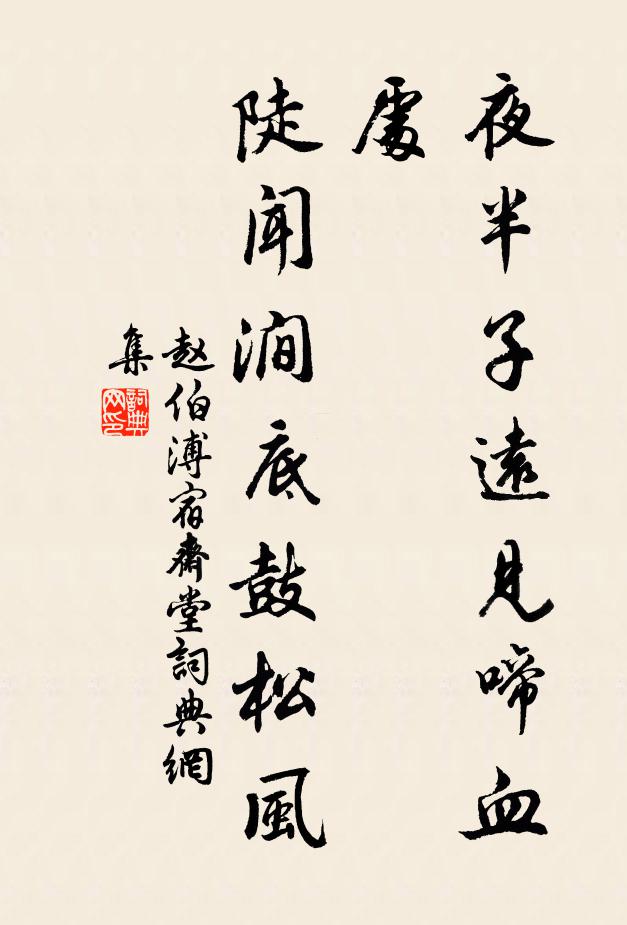 夜半子遠見啼血
處
陡闻澗底鼓松風
赵伯溥宿齋堂詞典網
集
詞典
网印